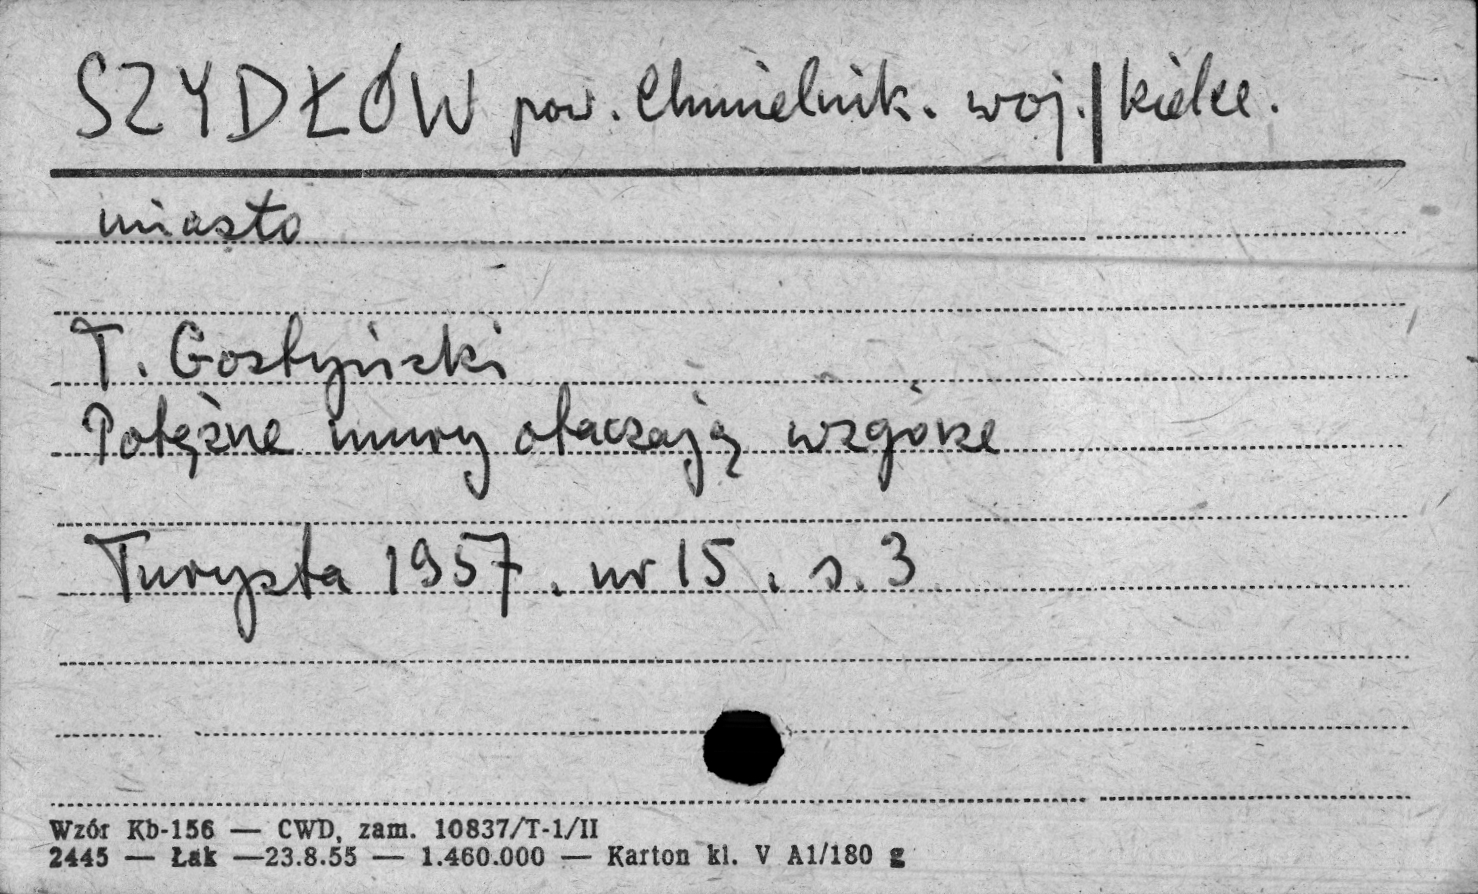 SZYDŁÓW pow. Chmielnik. woj. kielce.
miasto
T. Gostyński
Potężne mury otaczają wzgórze
Turysta 1957. nr 15. s. 3
Wzór Kb-156 — CWD, zam. 10837/T-1/II
2445 — Łak —23.8.55 — 1.460.000 — Karton kl. V A1/180 g